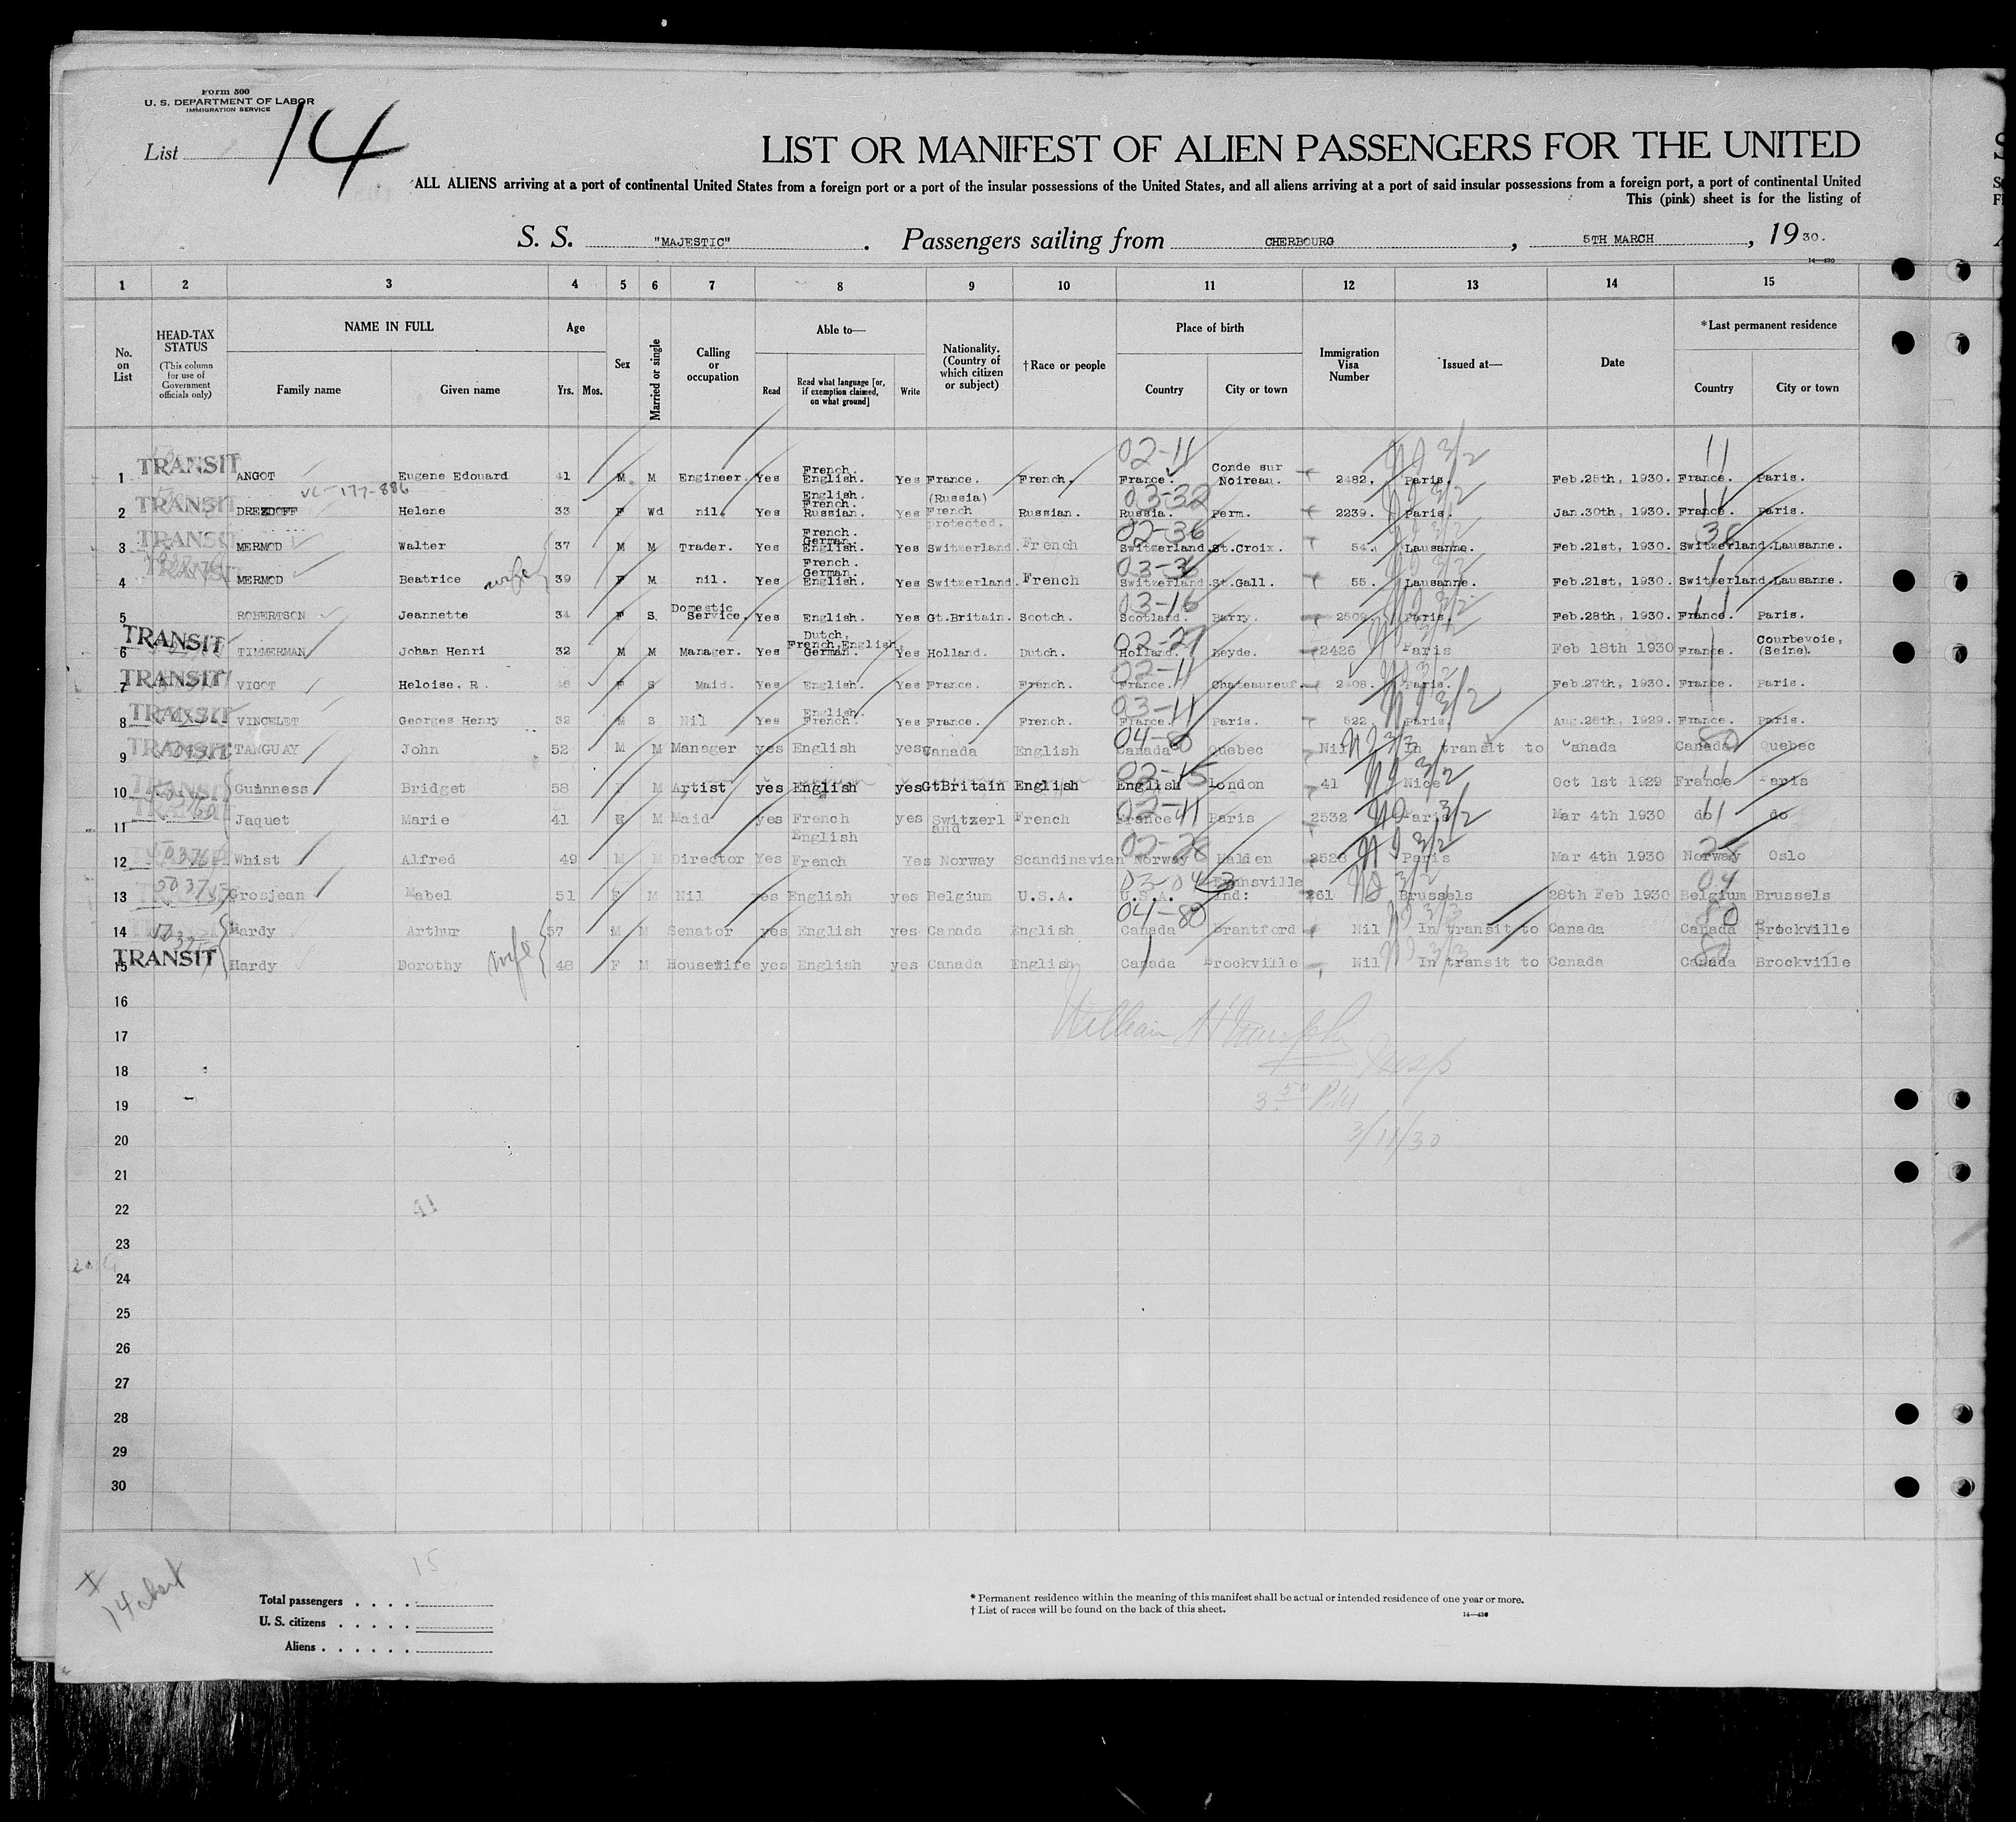 Form 500
U. S. DEPARTMENT OF LABOR
IMMIGRATION SERVICE
List 14
LIST OR MANIFEST OF ALIEN PASSENGERS FOR THE UNITED
ALL ALIENS arriving at a port of continental United States from a foreign port or a port of the insular possessions of the United States, and all aliens arriving at a port of said insular possessions from a foreign port, a port of continental United
This (pink) sheet is for the listing of
S. S. "MAJESTIC" . Passengers sailing from CHERBOURG , 5TH MARCH , 19 30.
14—430
1 2 3 4 5 6 7 8 9 10 11 12 13 14 15
No. on List
HEAD-TAX STATUS (This column for use of Government officials only)
NAME IN FULL Family name Given name
Age Yrs. Mos.
Sex
Married or single
Calling or occupation
Able to— Read Read what language [or, if exemption claimed, on what ground] Write
Nationality. (Country of which citizen or subject)
†Race or people
Place of birth Country City or town
Immigration Visa Number
Issued at—
Date
*Last permanent residence Country City or town
1 TRANSIT ANGOT Eugene Edouard 41 M M Engineer. Yes French. English. Yes France. French. 02-11 France. Conde sur Noireau. 2482. Paris. Feb.25th, 1930. 11 France. Paris.
VC-177-886
2 TRANSIT DREZDOFF Helene 33 F Wd nil. Yes English. French. Russian. Yes (Russia) French protected. Russian. 03-32 Russia. Perm. 2239. Paris. Jan.30th, 1930. 11 France. Paris.
3 TRANSIT MERMOD Walter 37 M M Trader. Yes French. German. English. Yes Switzerland. French 02-36 Switzerland. St.Croix. 54. Lausanne. Feb.21st, 1930. 36 Switzerland. Lausanne.
4 TRANSIT MERMOD Beatrice wife 39 F M nil. Yes French. German. English. Yes Switzerland. French Switzerland. St.Gall. 55. Lausanne. Feb.21st, 1930. Switzerland. Lausanne.
5 ROBERTSON Jeannette 34 F S Domestic Service. Yes English. Yes Gt.Britain. Scotch. 03-16 Scotland. Barry. Paris. Feb.28th, 1930. 11 France. Paris.
6 TRANSIT TIMMERMAN Johan Henri 32 M M Manager. Yes Dutch, French,English German. Yes Holland. Dutch. 02-27 Holland. Leyde. 2426 Paris Feb 18th 1930 France. Courbevoie, (Seine).
7 TRANSIT VIGOT Heloise. R. F S Maid. Yes English. Yes France. French. 02-11 France. Chateaureuf. 2408. Paris. Feb.27th, 1930. France. Paris.
8 TRANSIT VINCELET Georges Henry 32 M S Nil Yes English. French. Yes France. French. 03-11 France. Paris. 522. Paris. Aug.28th, 1929. France. Paris.
9 TRANSIT TANGUAY John 52 M M Manager yes English yes Canada English 04-80 Canada Quebec Nil In transit to Canada 80 Canada Quebec
10 TRANSIT Guinness Bridget 58 F M Artist yes English yes GtBritain English 02-15 English London 41 Nice Oct 1st 1929 France Paris
11 Jaquet Marie 41 F M Maid yes French English yes Switzerl and French 02-11 France Paris 2532 Paris Mar 4th 1930 do do
12 Whist Alfred 49 M M Director Yes French Yes Norway Scandinavian 02-28 Norway Halden Paris Mar 4th 1930 Norway Oslo
13 Grosjean Mabel 51 F M Nil yes English yes Belgium U.S.A. U.S.A. Evansville Ind: 261 Brussels 28th Feb 1930 04 Belgium Brussels
14 Hardy Arthur 57 M M Senator yes English yes Canada English 04-80 Canada Brantford Nil In transit to Canada 80 Canada Brockville
15 TRANSIT Hardy Dorothy wife 48 F M Housewife yes English yes Canada English Canada Brockville Nil In transit to Canada 80 Canada Brockville
16
17
18
19
20
21
22
23
24
25
26
27
28
29
30
William
Insp
3 50 PM
3/11/30
41
15
14 sheet
Total passengers . . . .
U. S. citizens . . . . .
Aliens . . . . . .
* Permanent residence within the meaning of this manifest shall be actual or intended residence of one year or more.
† List of races will be found on the back of this sheet.
14—430